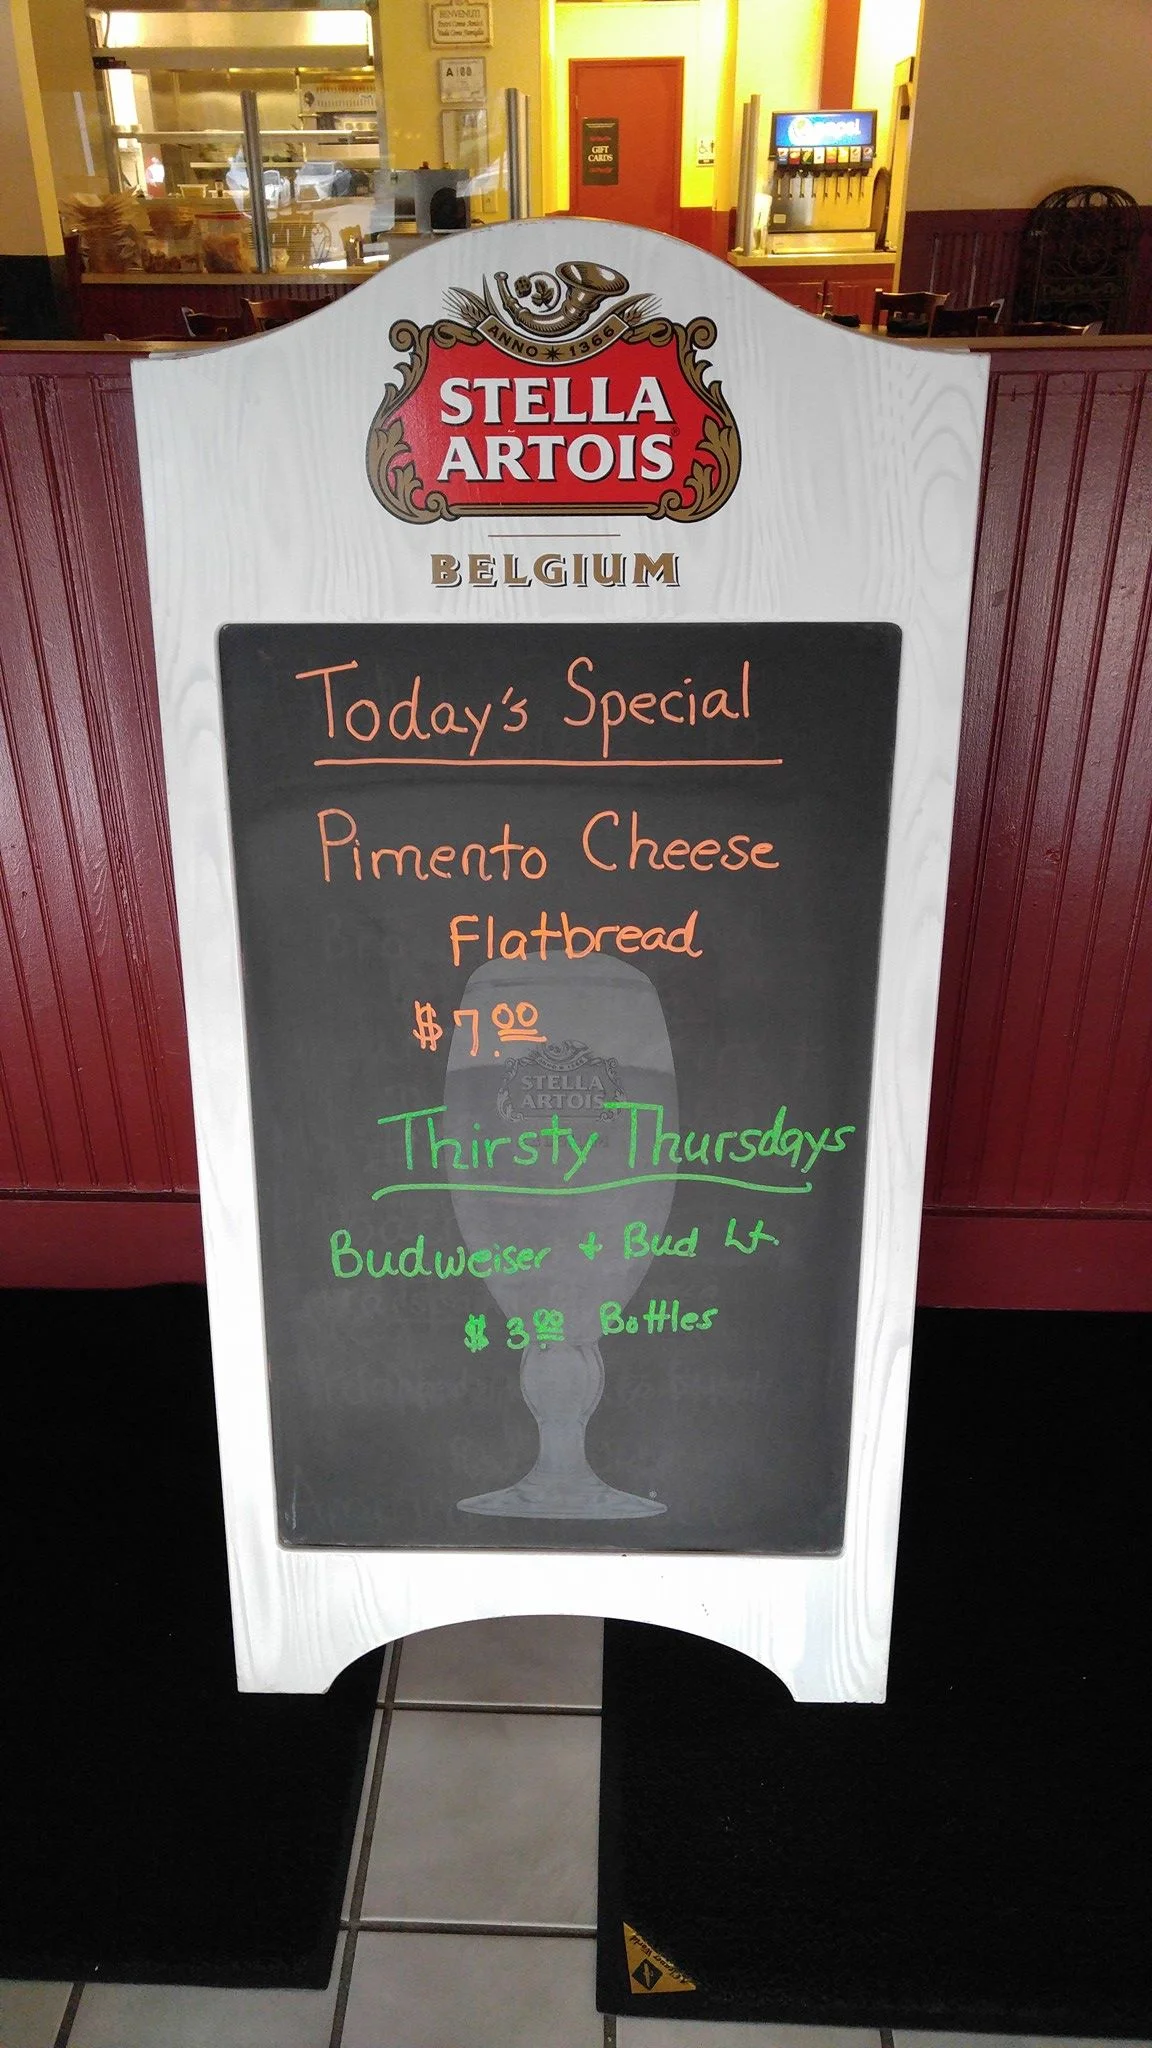 BENVENUTI
A 100
GIFT
CARDS
pepsi
ANNO 1366
STELLA
ARTOIS
BELGIUM
Today's Special
Pimento Cheese
Flatbread
$7.00
STELLA
ARTOIS
Thirsty Thursdays
Budweiser + Bud Lt.
$3.00 Bottles